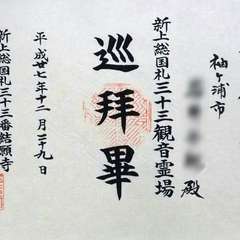 袖ヶ浦市
殿
新上総国札三十三観音霊場
巡拝畢
平成廿七年十二月二十九日
新上総国札三十三番結願寺